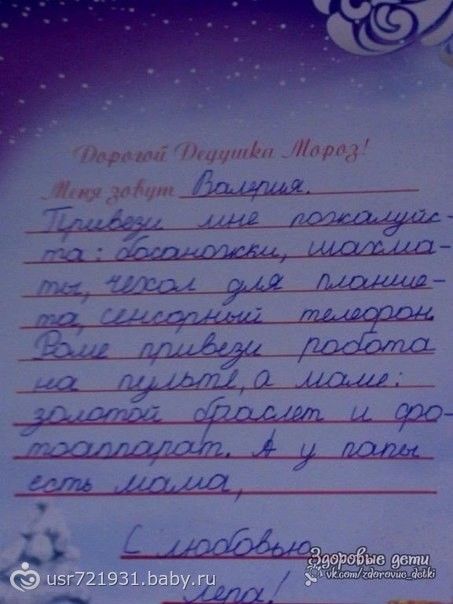 Дорогой Дедушка Мороз!
Меня зовут Валерия.
Привези мне пожалуйс-
та: босаножки, шахма-
ты, чехол для планше-
та, сенсорный телефон.
Роме привези робота
на пульте, а маме:
золотой браслет и фо-
тоаппарат. А у папы
есть мама,
С любовью
Лера!
Здоровые дети
vk.com/zdorovue_detki
usr721931.baby.ru